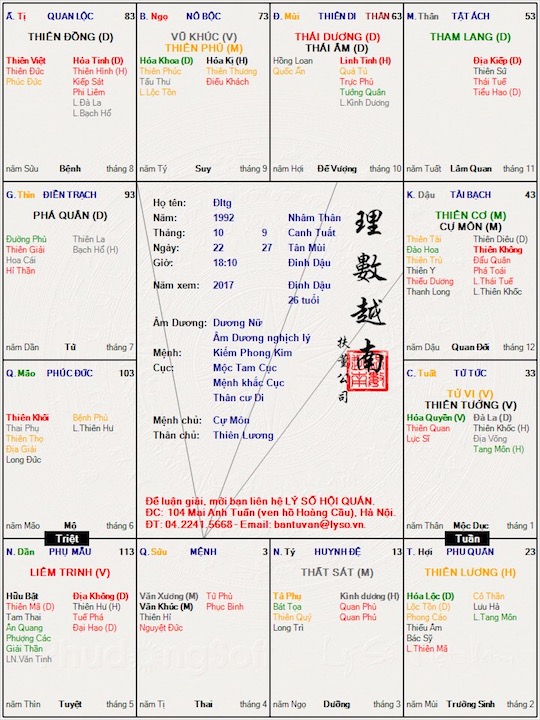 Á. Tị QUAN LỘC 83
THIÊN ĐỒNG (D)
Thiên Việt Hỏa Tinh (D)
Thiên Đức Thiên Hình (H)
Phúc Đức Kiếp Sát
Phi Liêm
L.Đà La
L.Bạch Hổ
năm Sửu Bệnh tháng 8
B. Ngọ NÔ BỘC 73
VŨ KHÚC (V)
THIÊN PHỦ (M)
Hóa Khoa (D) Hóa Kị (H)
Thiên Phúc Thiên Thương
Tấu Thư Điếu Khách
L.Lộc Tồn
năm Tý Suy tháng 9
Đ. Mùi THIÊN DI THÂN 63
THÁI DƯƠNG (D)
THÁI ÂM (D)
Hồng Loan Linh Tinh (H)
Quốc Ấn Quả Tú
Trực Phù
Tướng Quân
L.Kình Dương
năm Hợi Đế Vượng tháng 10
M. Thân TẬT ÁCH 53
THAM LANG (D)
Địa Kiếp (D)
Thiên Sứ
Thái Tuế
Tiểu Hao (D)
năm Tuất Lâm Quan tháng 11
G. Thìn ĐIỀN TRẠCH 93
PHÁ QUÂN (D)
Đường Phù Thiên La
Thiên Giải Bạch Hổ (H)
Hoa Cái
Hỉ Thần
năm Dần Tử tháng 7
Họ tên: Đltg
Năm: 1992 Nhâm Thân
Tháng: 10 9 Canh Tuất
Ngày: 22 27 Tân Mùi
Giờ: 18:10 Đinh Dậu
Năm xem: 2017 Đinh Dậu
26 tuổi
Âm Dương: Dương Nữ
Âm Dương nghịch lý
Mệnh: Kiếm Phong Kim
Cục: Mộc Tam Cục
Mệnh khắc Cục
Thân cư Di
Mệnh chủ: Cự Môn
Thân chủ: Thiên Lương
理數越南
扶董公司
Để luận giải, mời bạn liên hệ LÝ SỐ HỘI QUÁN.
ĐC: 104 Mai Anh Tuấn (ven hồ Hoàng Cầu), Hà Nội.
ĐT: 04.2241.5668 - Email: bantuvan@lyso.vn.
K. Dậu TÀI BẠCH 43
THIÊN CƠ (M)
CỰ MÔN (M)
Thiên Tài Thiên Diêu (D)
Đào Hoa Thiên Không
Thiên Trù Đẩu Quân
Thiên Y Phá Toái
Thiếu Dương L.Thái Tuế
Thanh Long L.Thiên Khốc
năm Dậu Quan Đới tháng 12
Q. Mão PHÚC ĐỨC 103
Thiên Khôi Bệnh Phù
Thai Phụ L.Thiên Hư
Thiên Thọ
Địa Giải
Long Đức
năm Mão Mộ tháng 6
C. Tuất TỬ TỨC 33
TỬ VI (V)
THIÊN TƯỚNG (V)
Hóa Quyền (V) Đà La (D)
Thiên Quan Thiên Khốc (H)
Lực Sĩ Địa Võng
Tang Môn (H)
năm Thân Mộc Dục tháng 1
Triệt
Tuần
N. Dần PHỤ MẪU 113
LIÊM TRINH (V)
Hữu Bật Địa Không (D)
Thiên Mã (D) Thiên Hư (H)
Tam Thai Tuế Phá
Ân Quang Đại Hao (D)
Phượng Các
Giải Thần
LN.Văn Tinh
năm Thìn Tuyệt tháng 5
Q. Sửu MỆNH 3
Văn Xương (M) Tử Phù
Văn Khúc (M) Phục Binh
Thiên Hỉ
Nguyệt Đức
năm Tị Thai tháng 4
N. Tý HUYNH ĐỆ 13
THẤT SÁT (M)
Tả Phụ Kình dương (H)
Bát Tọa Quan Phù
Thiên Quý Quan Phủ
Long Trì
năm Ngọ Dưỡng tháng 3
T. Hợi PHU QUÂN 23
THIÊN LƯƠNG (H)
Hóa Lộc (D) Cô Thần
Lộc Tồn (D) Lưu Hà
Phong Cáo L.Tang Môn
Thiếu Âm
Bác Sỹ
L.Thiên Mã
năm Mùi Trường Sinh tháng 2